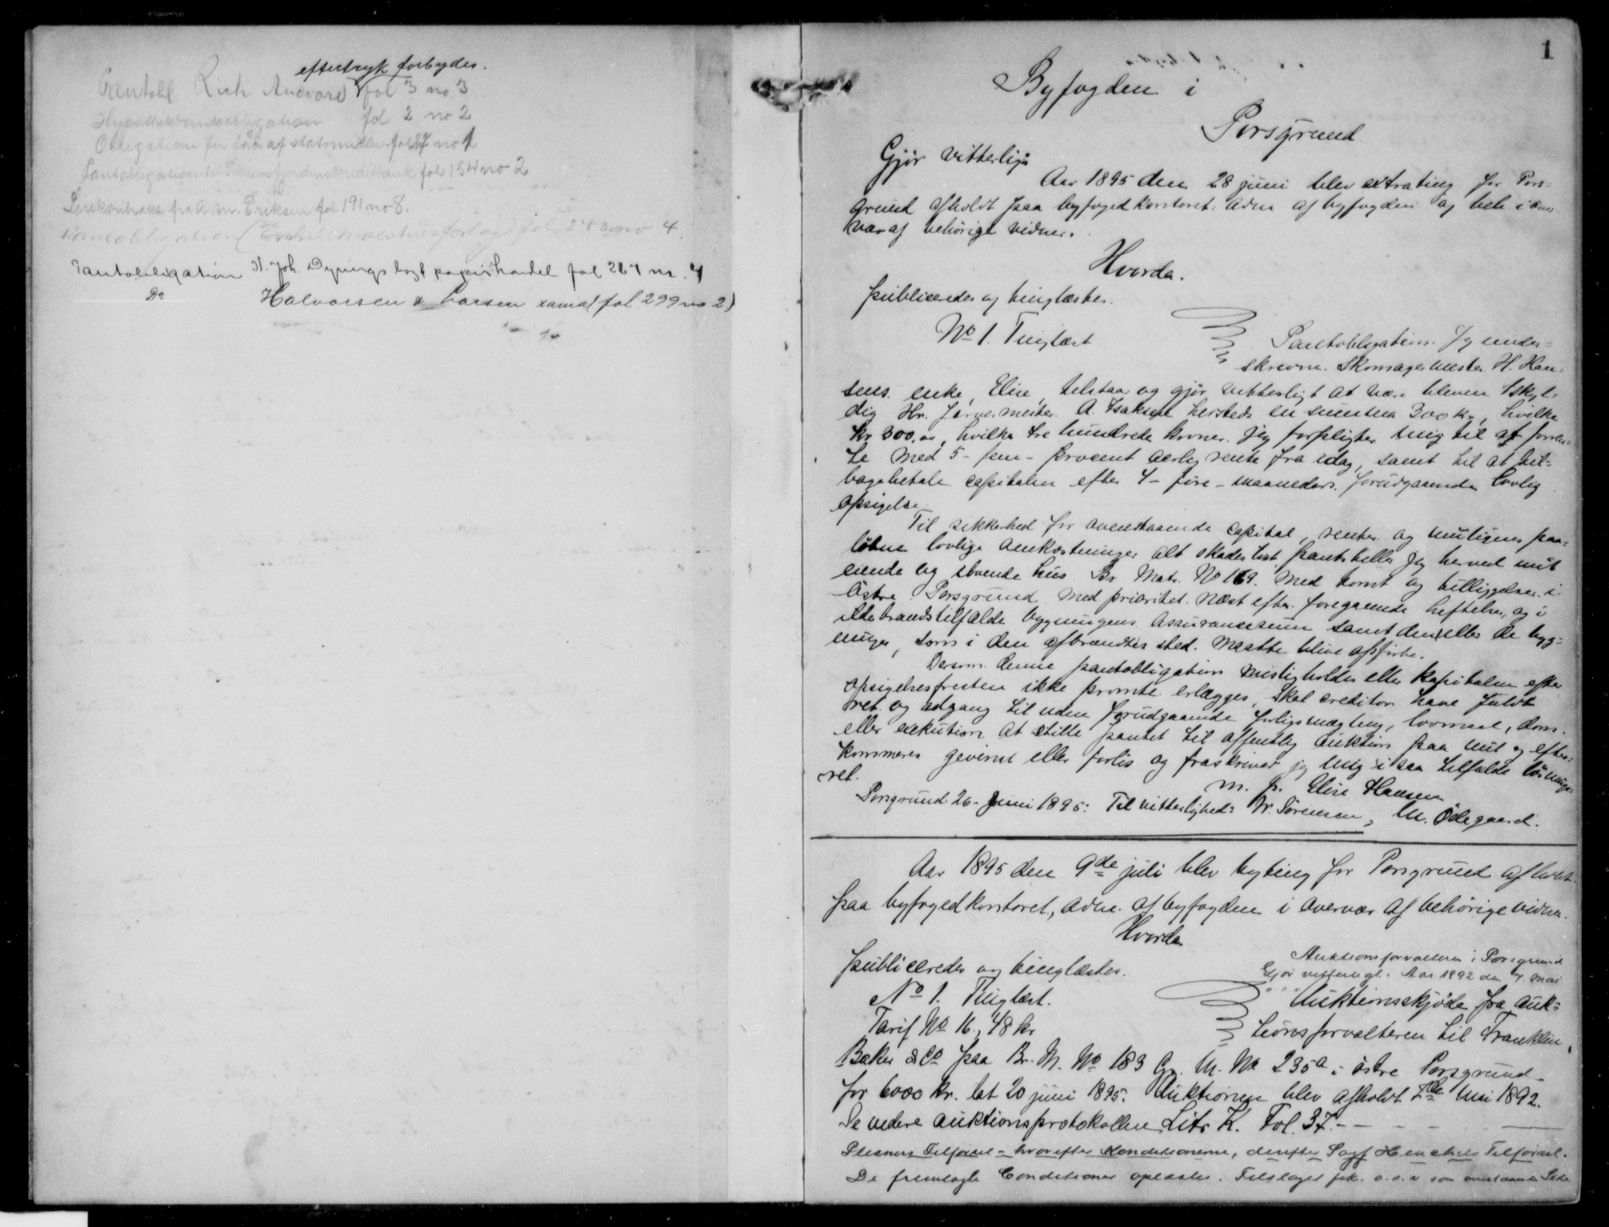 eftertryk forbydes.
Pantobl Rich Andvord fol 3 no 3
Hypothekbankobligation fol 2 no 2
Obligation for laan af statsmidler fol 27 no 1
Pantobligation til Skiensfjordens kreditbank fol 154 no 2
Leiekontrakt fra A. M. Eriksen fol 191 no 8.
fol 240 no 4.
Pantobligation N. Joh. Dyrings bog & papirhandel fol 267 nr. 4
Do Halvorsen & Larsen (fol 299 no 2)
1
Byfogden i
Porsgrund
Gjør vitterligt
Aar 1895 den 28 juni blev extrating for Pors=
grund afholdt paa byfogedkontoret. Adm af byfogden og hele i over
vær af behørige vidner.
Hvorda.
publiceredes og tinglæstes.
No 1. Tinglæst
Pantobligation. Jeg under=
skrevne. Skomagermester H. Han=
sens. enke, Elise, tilstaar og gjør vitterligt at være bleven skyl=
dig Hr. Farvermester A. Isaksen hersteds en summa 300 kr, hvilke
kr 300,00, hvilke tre hundrede kroner. Jeg forpligter mig til at forren=
te med 5 - fem - procent aarlig rente fra idag, samt til at til=
bagebetale capitalen efter 4 - fire - maaneders forudgaaende lovlig
opsigelse.
Til sikkerhed for ovenstaaende capital, renter og muligens paa=
løbne lovlige omkostninger alt skadesløst pantstiller jeg herved mit
eiende og iboende hus Br. Matr. No 169. med tomt og tilliggelser i
Østre Porsgrund med prioritet næst efter foregaaende heftelser, og i
ildebrandstilfælde bygningens Assurancesum samt den eller de byg=
ninger, som i den afbrændtes sted maatte blive opførte.
Dersom denne pantobligation misligholdes eller kapitalen efter
opsigelsesfristen ikke promte erlægges, skal creditor have fuldt
ret og adgang til uden forudgaaende forligsmægling, lovmaal, dom
eller exekution at stille pantet til offentlig auktion paa mit og efter=
kommeres gevinst eller forlis og fraskriver jeg mig i saa tilfælde løsnings=
ret.
m. p. Elise Hansen
Porsgrund 26- Juni 1895: Til vitterlighed: W. Sørensen, M. Ödegaard.
Aar 1895 den 9de juli blev byting for Porsgrund afholdt
paa byfogedkontoret, Adm. af byfogden i overvær af behørige vidner.
Hvorda
publiceredes og tinglæstes.
Auktionsforvalteren i Porsgrund
Gjør vitterligt: Aar 1892 den 7 mai
No 1. Tinglæst.
Auktionsskjøde fra auk=
Tarif No 16, 48 kr
tionsforvalteren til Franklin,
Baker & Co paa Br. M. No 183 Gr. M. No 235a i østre Porsgrund
for 6000 kr. dat 20 juni 1895. Auktionen blev afholdt 7de Mai 1892.
Se videre auktionsprotokollen Litr K. Fol. 37. - - -
Plesners Tilførsel - hvorefter Konditionerne, derefter Sagf Henchels Tilførsel.
De fremlagte Conditioner oplæstes. Tilslaget fik. o.s.v som ovenstaaende Side